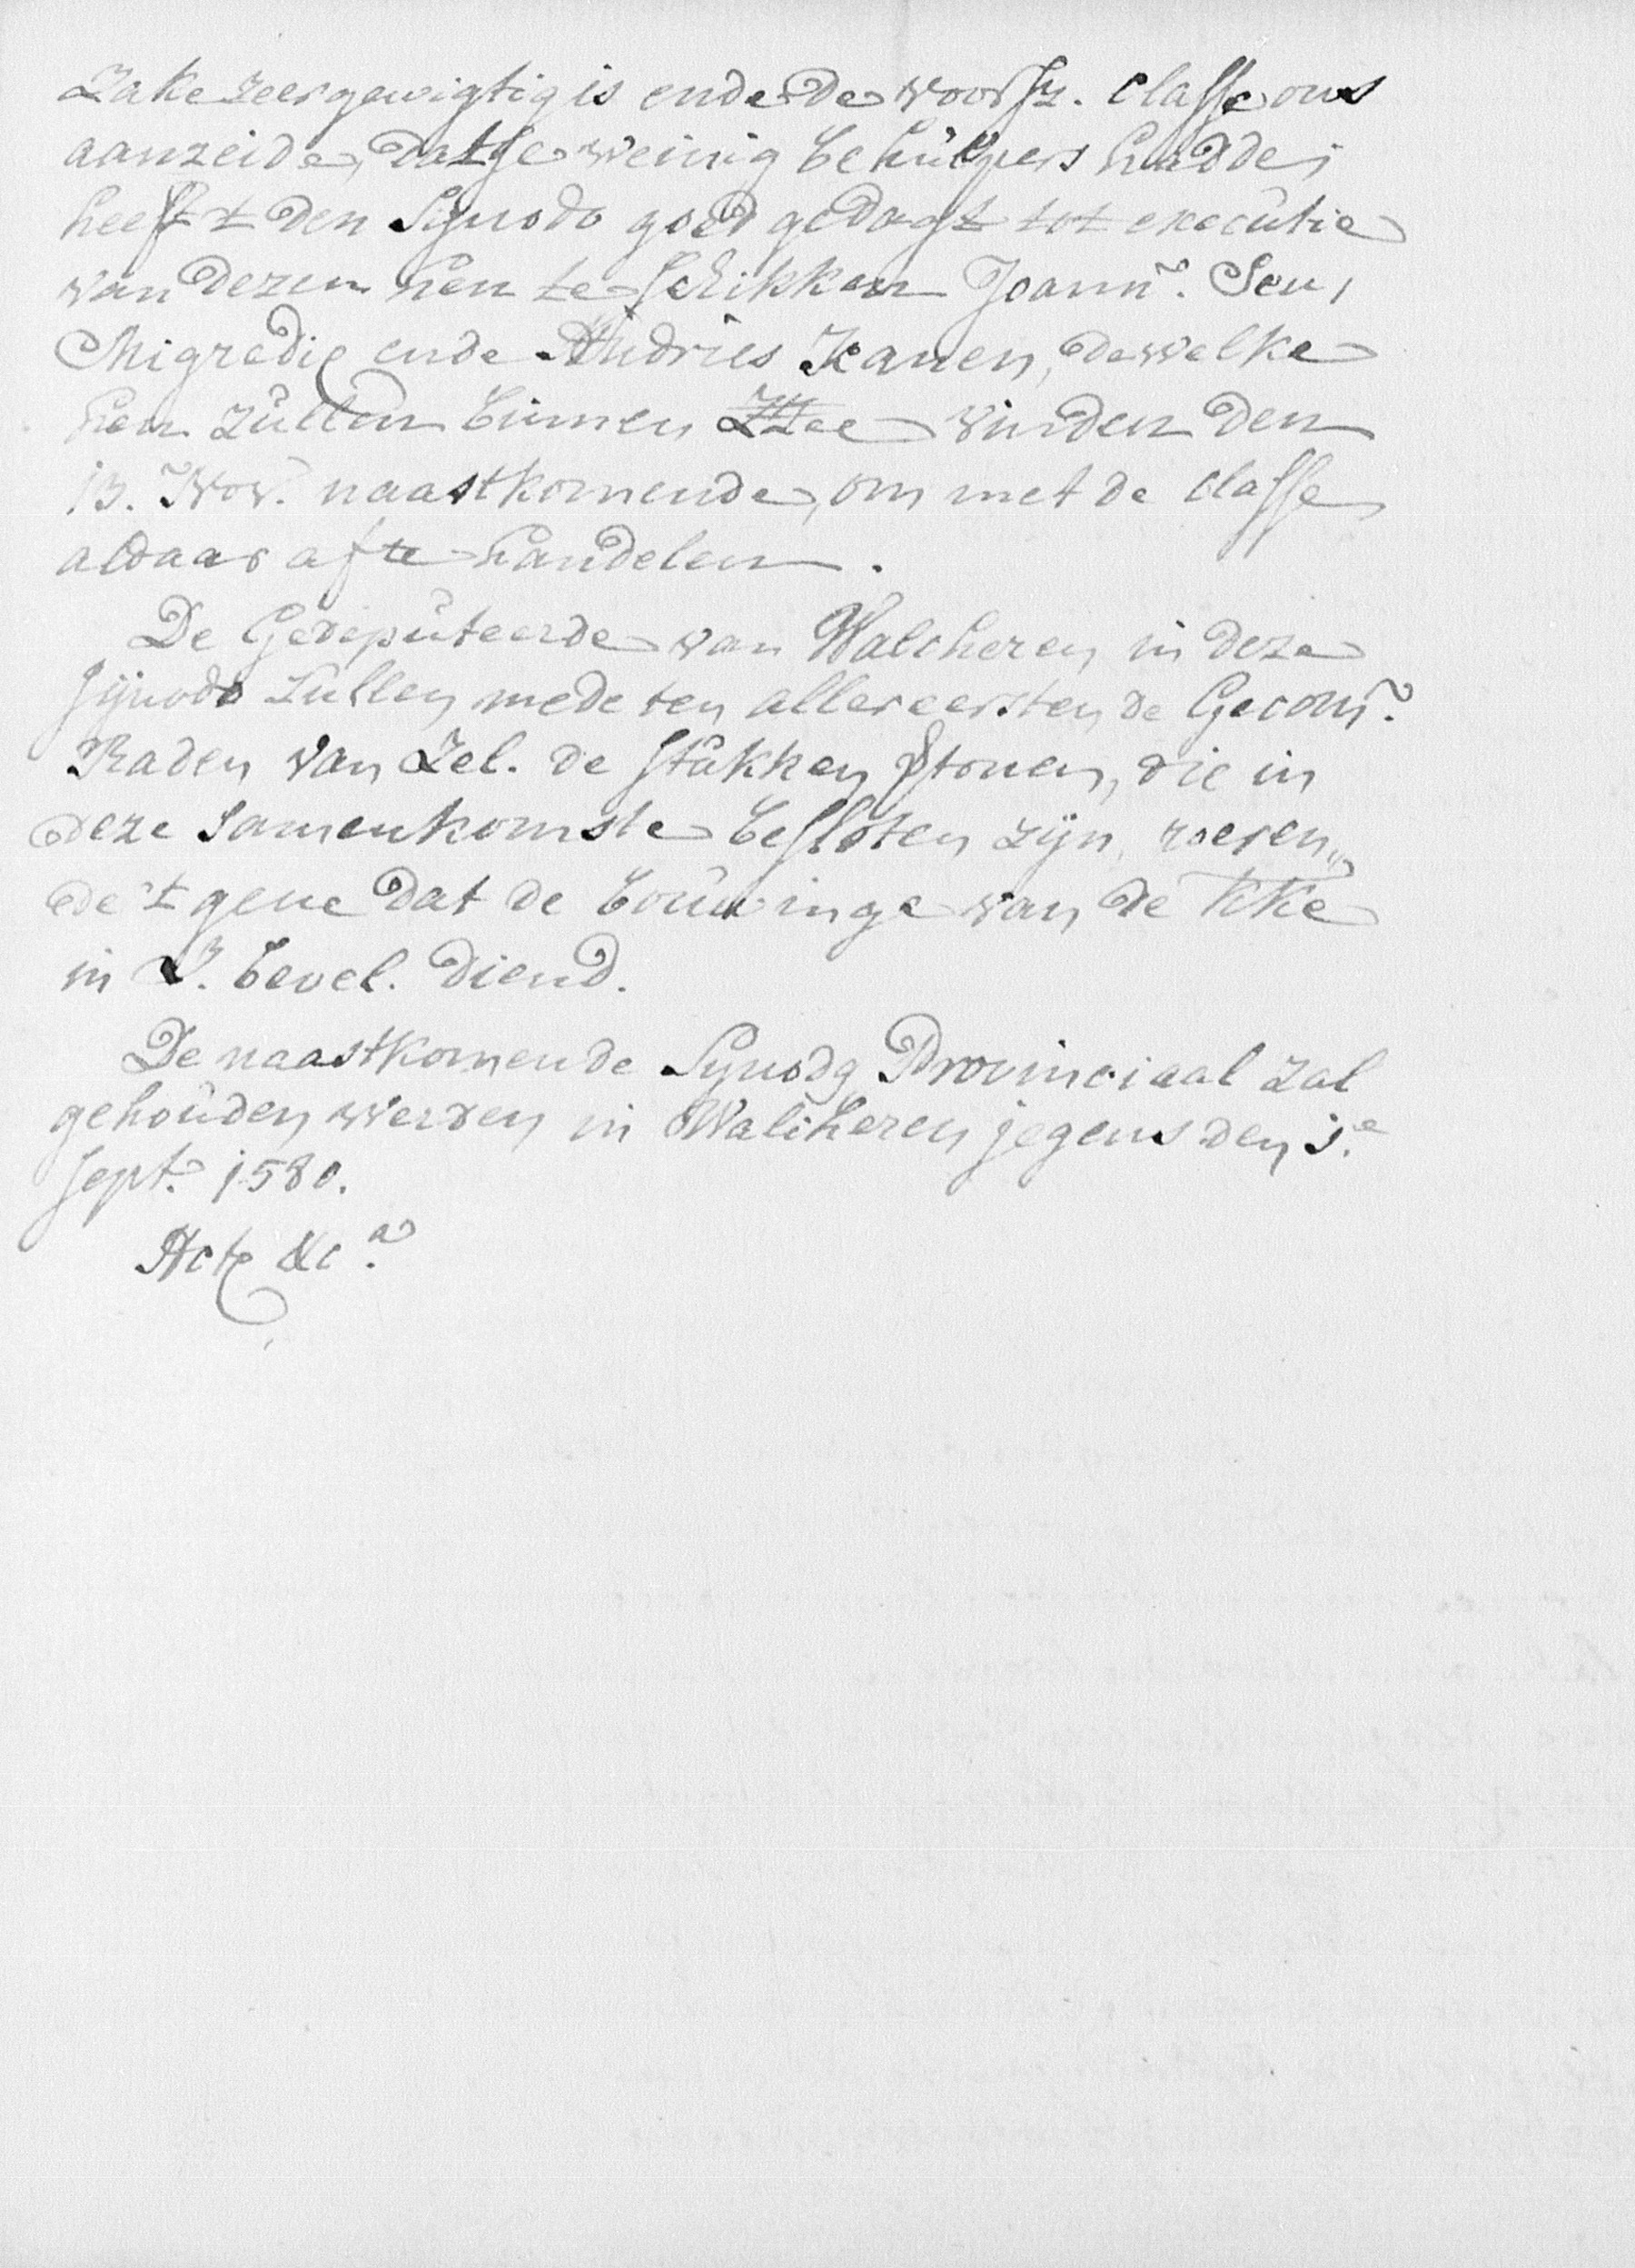 Zake zeer gewigtig is ende de voorsz. Classe ons
aanzeide, datse weinig behülpers hadde;
heeft den Synodo goed gedagt tot executie
van dezen hen te schikken Joann͂. Seu,
Migrodie ende Andries Janen, dewelke
hen züllen binnen Zzee vinden den
13. Nov. naastkomende, om met de classe
aldaar af te handelen.
De Gedepüteerde van Walcheren in deze
synodo zullen mede ten allereersten de Gecom͂.
Raden van Zel. de stükken thonen, die in
deze samenkomste besloten zijn, roeren„
de 't gene dat de boüwinge van de kke
in Z. bevel. diend.
De naastkomende Synodq Provinciaal zal
gehoüden werden in Walcheren jegens den 1.e
Sept. 1580.
Act &c.a